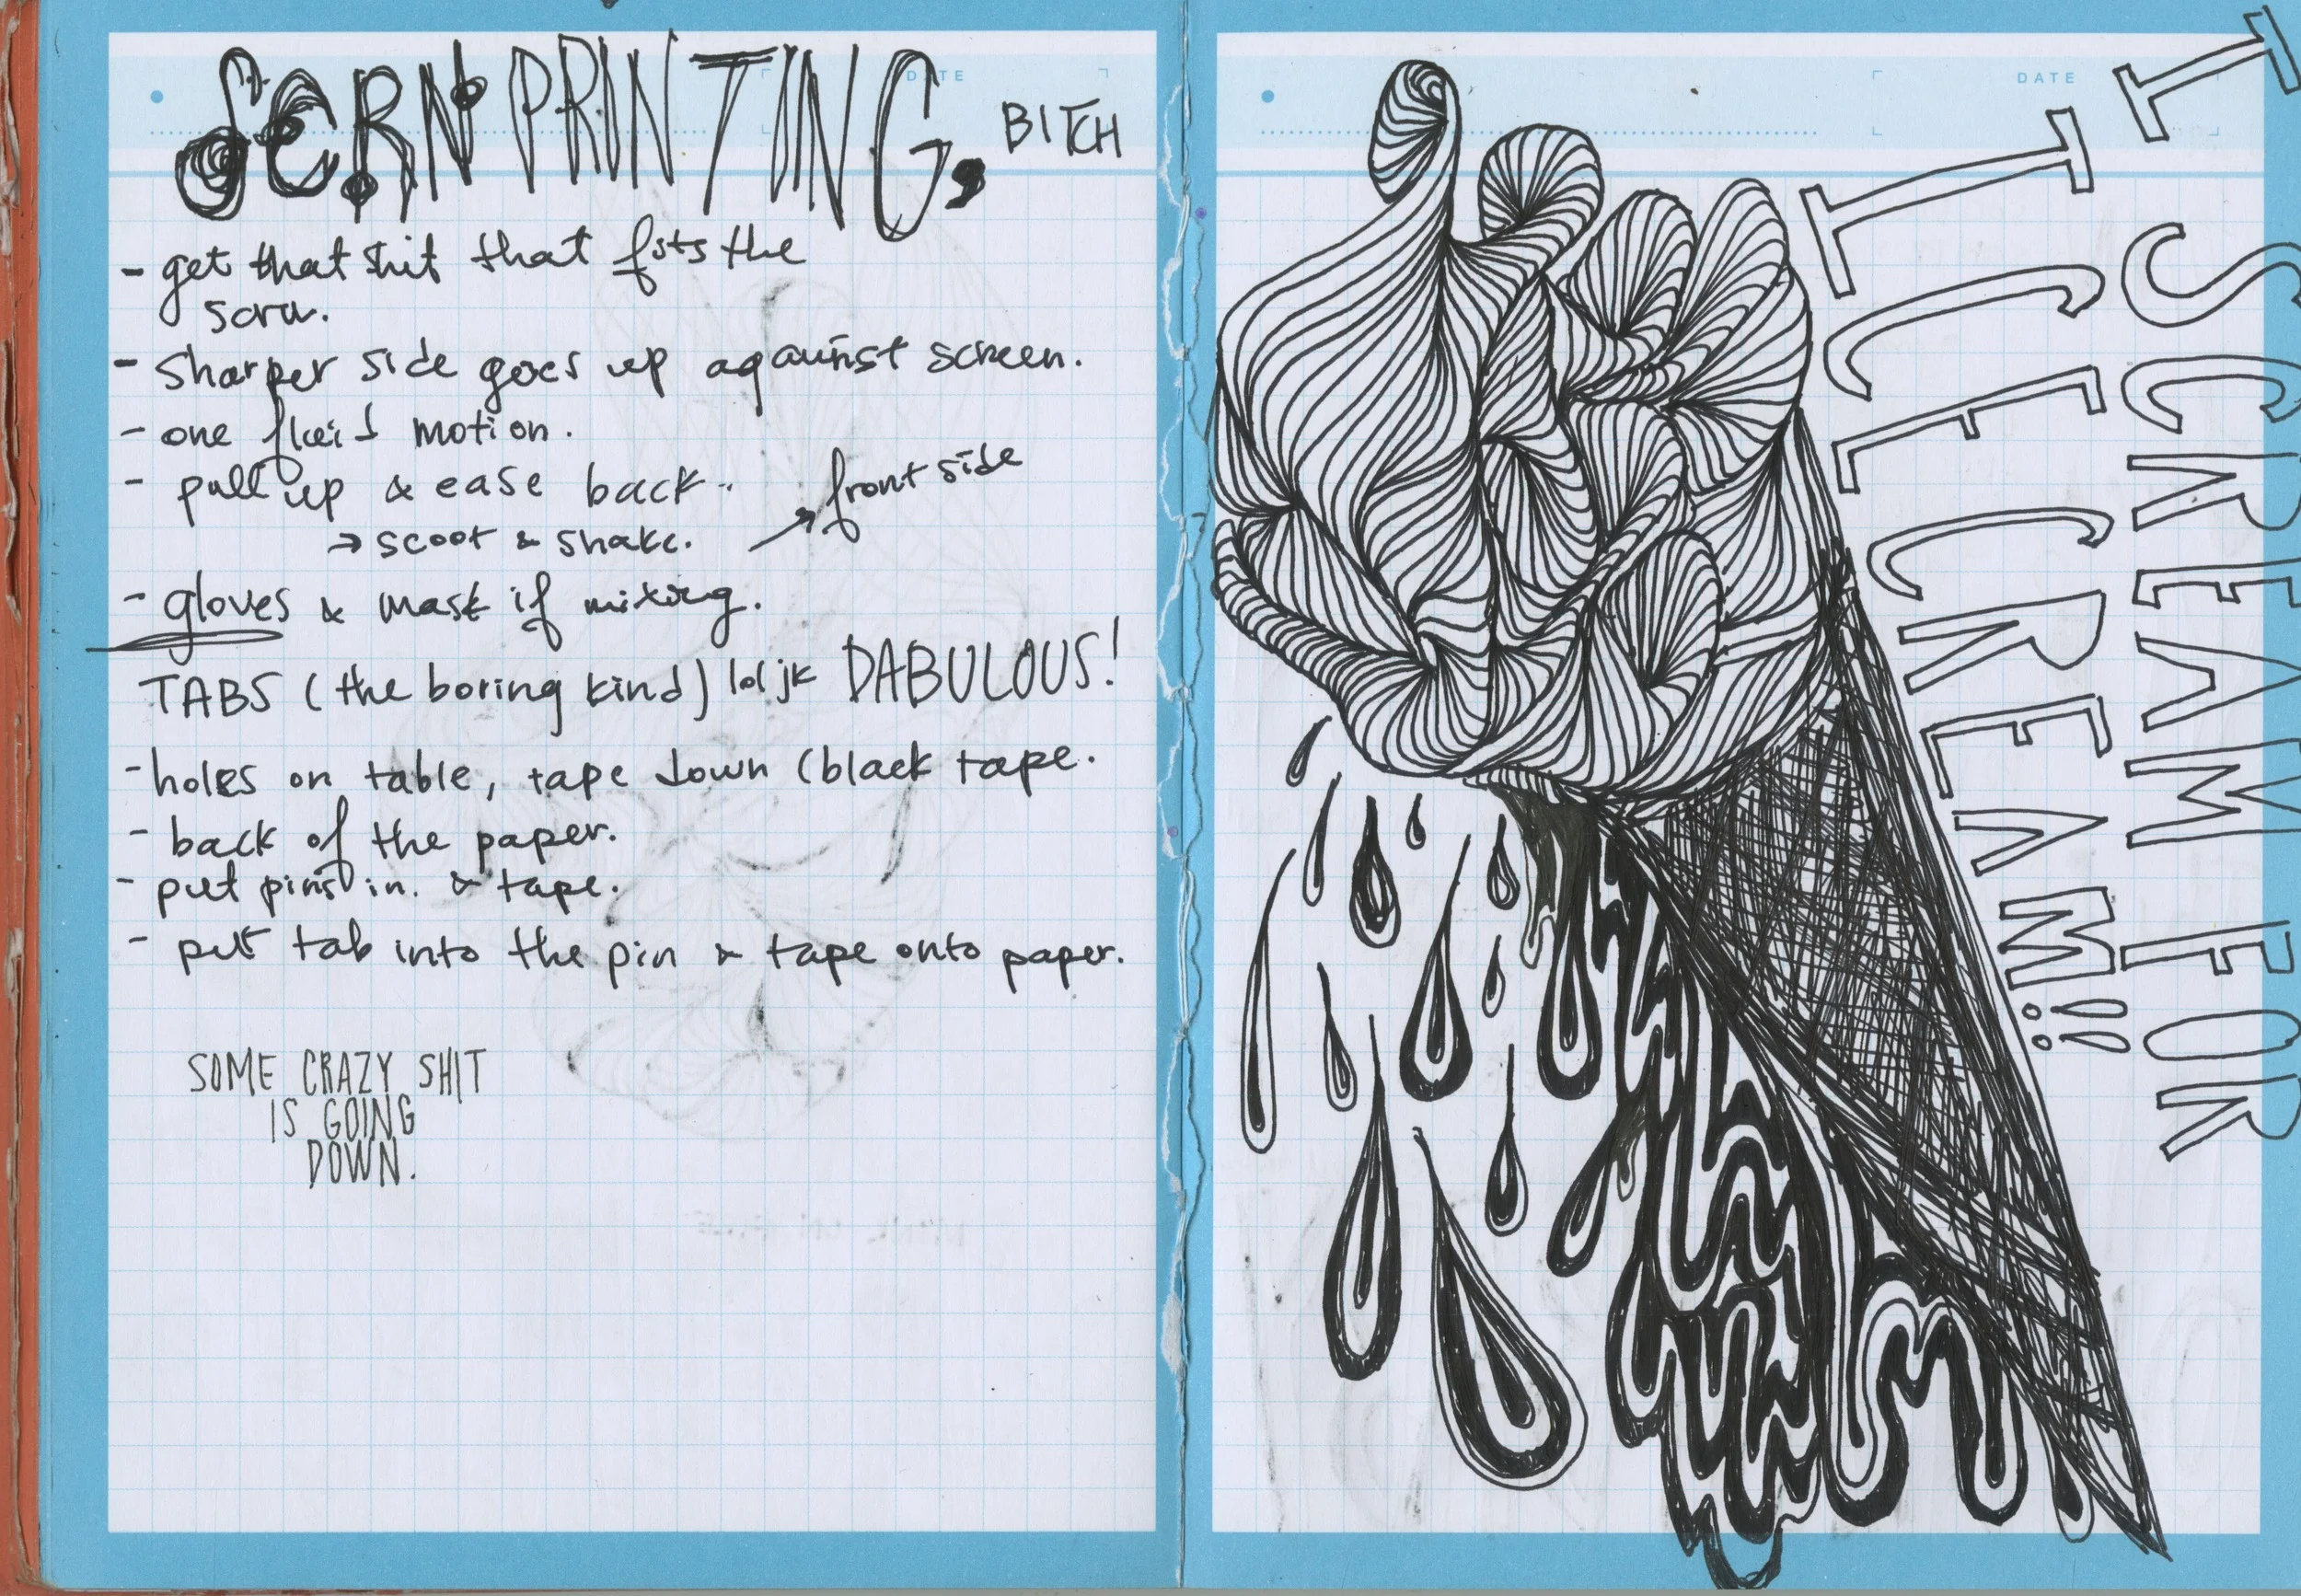 SCRN PRINTING, BITCH
DATE
- get that shit that fits the
scrn.
- sharper side goes up against screen.
- one fluid motion.
- pull up & ease back.
→ scoot & shake. → front side
- gloves & mask if mixing.
TABS (the boring kind) lol jk DABULOUS!
- holes on table, tape down (black tape.
- back of the paper.
- put pins in. & tape.
- put tab into the pin & tape onto paper.
SOME CRAZY SHIT
IS GOING
DOWN.
DATE
I SCREAM FOR
ICE CREAM!!